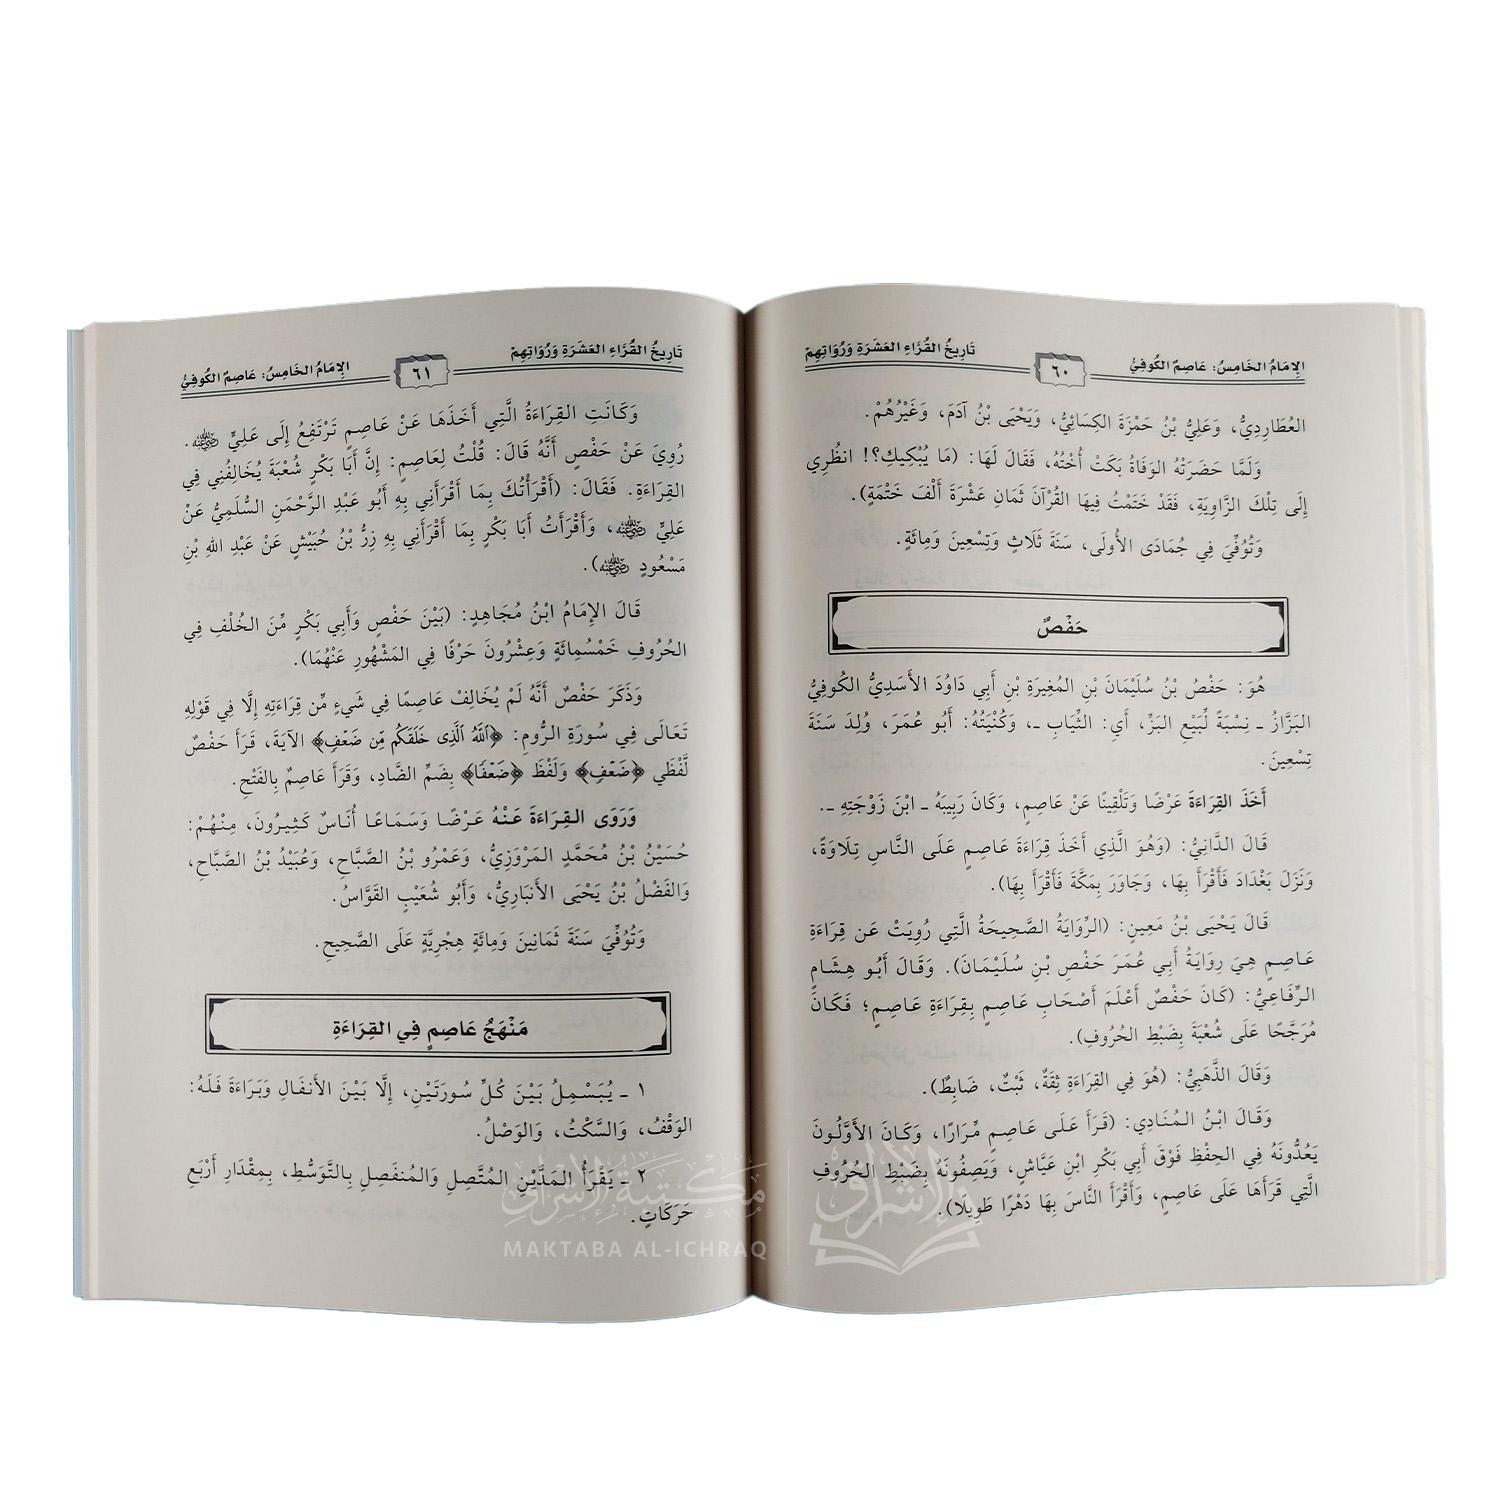 الإِمَامُ الخَامِسُ: عَاصِمٌ الكُوفِيُّ
٦٠
تَارِيخُ القُرَّاءِ العَشَرَةِ وَرُوَاتِهِمْ
العُطَارِدِيُّ، وَعَلِيُّ بْنُ حَمْزَةَ الكِسَائِيُّ، وَيَحْيَى بْنُ آدَمَ، وَغَيْرُهُمْ.
وَلَمَّا حَضَرَتْهُ الوَفَاةُ بَكَتْ أُخْتُهُ، فَقَالَ لَهَا: (مَا يُبْكِيكِ؟! انظُرِي
إِلَى تِلْكَ الزَّاوِيَةِ، فَقَدْ خَتَمْتُ فِيهَا القُرْآنَ ثَمَانِ عَشْرَةَ أَلْفَ خَتْمَةٍ).
وَتُوُفِّيَ فِي جُمَادَى الأُولَى، سَنَةَ ثَلَاثٍ وَتِسْعِينَ وَمِائَةٍ.
حَفْصٌ
هُوَ: حَفْصُ بْنُ سُلَيْمَانَ بْنِ المُغِيرَةِ بْنِ أَبِي دَاوُدَ الأَسَدِيُّ الكُوفِيُّ
البَزَّازُ ـ نِسْبَةً لِّبَيْعِ البَزِّ، أَيِ: الثِّيَابِ ـ، وَكُنْيَتُهُ: أَبُو عُمَرَ، وُلِدَ سَنَةَ
تِسْعِينَ.
أَخَذَ القِرَاءَةَ عَرْضًا وَتَلْقِينًا عَنْ عَاصِمٍ، وَكَانَ رَبِيبَهُ ـ ابْنَ زَوْجَتِهِ ـ.
قَالَ الدَّانِيُّ: (وَهُوَ الَّذِي أَخَذَ قِرَاءَةَ عَاصِمٍ عَلَى النَّاسِ تِلَاوَةً،
وَنَزَلَ بَغْدَادَ فَأَقْرَأَ بِهَا، وَجَاوَرَ بِمَكَّةَ فَأَقْرَأَ بِهَا).
قَالَ يَحْيَى بْنُ مَعِينٍ: (الرِّوَايَةُ الصَّحِيحَةُ الَّتِي رُوِيَتْ عَن قِرَاءَةِ
عَاصِمٍ هِيَ رِوَايَةُ أَبِي عُمَرَ حَفْصِ بْنِ سُلَيْمَانَ). وَقَالَ أَبُو هِشَامٍ
الرِّفَاعِيُّ: (كَانَ حَفْصٌ أَعْلَمَ أَصْحَابِ عَاصِمٍ بِقِرَاءَةِ عَاصِمٍ؛ فَكَانَ
مُرَجَّحًا عَلَى شُعْبَةَ بِضَبْطِ الحُرُوفِ).
وَقَالَ الذَّهَبِيُّ: (هُوَ فِي القِرَاءَةِ ثِقَةٌ، ثَبْتٌ، ضَابِطٌ).
وَقَالَ ابْنُ المُنَادِي: (قَرَأَ عَلَى عَاصِمٍ مِّرَارًا، وَكَانَ الأَوَّلُونَ
يَعُدُّونَهُ فِي الحِفْظِ فَوْقَ أَبِي بَكْرِ ابْنِ عَيَّاشٍ، وَيَصِفُونَهُ بِضَبْطِ الحُرُوفِ
الَّتِي قَرَأَهَا عَلَى عَاصِمٍ، وَأَقْرَأَ النَّاسَ بِهَا دَهْرًا طَوِيلًا).
تَارِيخُ القُرَّاءِ العَشَرَةِ وَرُوَاتِهِمْ
٦١
الإِمَامُ الخَامِسُ: عَاصِمٌ الكُوفِيُّ
وَكَانَتِ القِرَاءَةُ الَّتِي أَخَذَهَا عَنْ عَاصِمٍ تَرْتَفِعُ إِلَى عَلِيٍّ رضي الله عنه.
رُوِيَ عَنْ حَفْصٍ أَنَّهُ قَالَ: قُلْتُ لِعَاصِمٍ: إِنَّ أَبَا بَكْرٍ شُعْبَةَ يُخَالِفُنِي فِي
القِرَاءَةِ. فَقَالَ: (أَقْرَأْتُكَ بِمَا أَقْرَأَنِي بِهِ أَبُو عَبْدِ الرَّحْمَنِ السُّلَمِيُّ عَنْ
عَلِيٍّ رضي الله عنه، وَأَقْرَأْتُ أَبَا بَكْرٍ بِمَا أَقْرَأَنِي بِهِ زِرُّ بْنُ حُبَيْشٍ عَنْ عَبْدِ اللهِ بْنِ
مَسْعُودٍ رضي الله عنه).
قَالَ الإِمَامُ ابْنُ مُجَاهِدٍ: (بَيْنَ حَفْصٍ وَأَبِي بَكْرٍ مِّنَ الخُلْفِ فِي
الحُرُوفِ خَمْسُمِائَةٍ وَعِشْرُونَ حَرْفًا فِي المَشْهُورِ عَنْهُمَا).
وَذَكَرَ حَفْصٌ أَنَّهُ لَمْ يُخَالِفْ عَاصِمًا فِي شَيْءٍ مِّن قِرَاءَتِهِ إِلَّا فِي قَوْلِهِ
تَعَالَى فِي سُورَةِ الرُّومِ: ﴿ٱللَّهُ ٱلَّذِى خَلَقَكُم مِّن ضَعۡفٍ﴾ الآيَةَ، قَرَأَ حَفْصٌ
لَّفْظَي ﴿ضَعۡفٍ﴾ وَلَفْظَ ﴿ضَعۡفًا﴾ بِضَمِّ الضَّادِ، وَقَرَأَ عَاصِمٌ بِالفَتْحِ.
وَرَوَى القِرَاءَةَ عَنْهُ عَرْضًا وَسَمَاعًا أُنَاسٌ كَثِيرُونَ، مِنْهُمْ:
حُسَيْنُ بْنُ مُحَمَّدٍ المَرْوَزِيُّ، وَعَمْرُو بْنُ الصَّبَّاحِ، وَعُبَيْدُ بْنُ الصَّبَّاحِ،
وَالفَضْلُ بْنُ يَحْيَى الأَنبَارِيُّ، وَأَبُو شُعَيْبٍ القَوَّاسُ.
وَتُوُفِّيَ سَنَةَ ثَمَانِينَ وَمِائَةٍ هِجْرِيَّةٍ عَلَى الصَّحِيحِ.
مَنْهَجُ عَاصِمٍ فِي القِرَاءَةِ
١ ـ يُبَسْمِلُ بَيْنَ كُلِّ سُورَتَيْنِ، إِلَّا بَيْنَ الأَنفَالِ وَبَرَاءَةَ فَلَهُ:
الوَقْفُ، وَالسَّكْتُ، وَالوَصْلُ.
٢ ـ يَقْرَأُ المَدَّيْنِ المُتَّصِلِ وَالمُنفَصِلِ بِالتَّوَسُّطِ، بِمِقْدَارِ أَرْبَعِ
حَرَكَاتٍ.
مكتبة الإشراق
MAKTABA AL-ICHRAQ
الإشراق